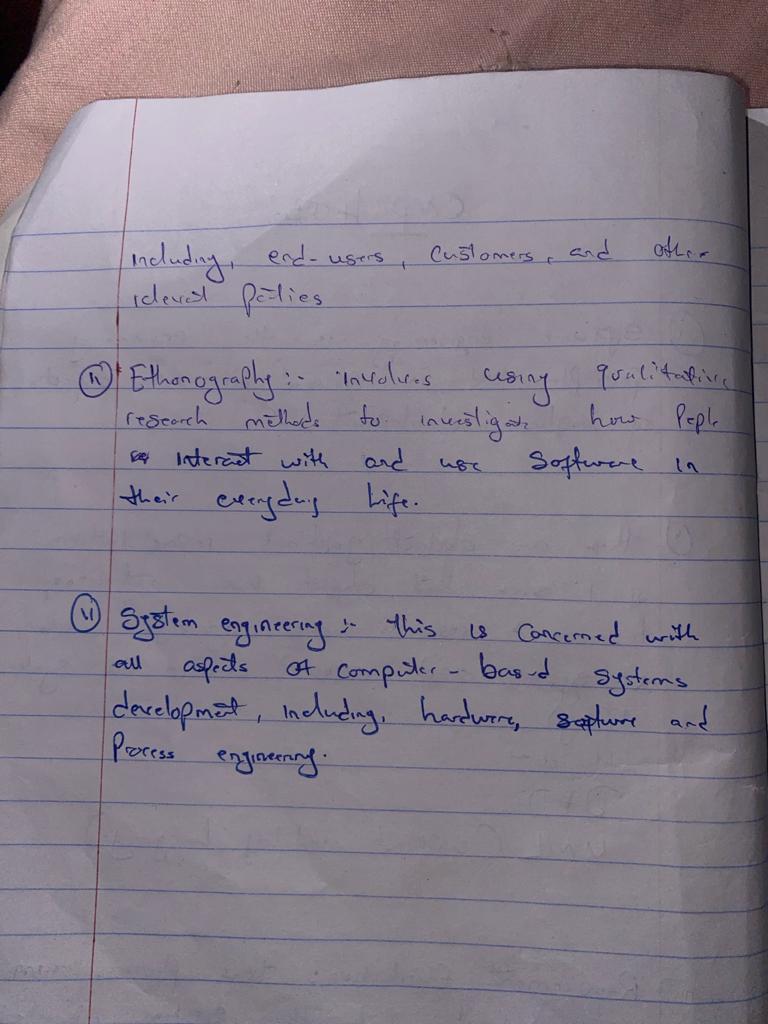 including, end-users, Customers, and other
relevat Paties
(v) Ethonography :- involves using qualitative
research methods to investigate how Peple
interact with and use Software in
their everyday Life.
(vi) System engineering :- this is Concerned with
all aspects of computer-based systems
development, including, hardware, software and
Process engineering.